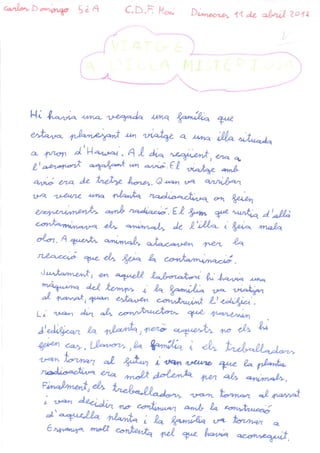 Carlos Domingo 5è A C.D.F. Mon Dimecres 11 de abril 2014
VIATGE
A L'ILLA MISTERIOSA
Hi havia una vegada una família que
estava planejant un viatge a una illa situada
a prop d'Hawai. Al dia següent, era a
l'aeroport agafant un avió. El viatge amb
avió era de tretze hores. Quan va arribar
va veure una planta radioactiva on feien
experiments amb radiació. El fum que sortia d'allà
contaminava els animals de l'illa i feia mala
olor. Aquests animals atacaven per la
reacció que els feia la contaminació.
Justament, en aquell laboratori hi havia una
màquina del temps i la família va viatjar
al passat, quan estaven construint l'edifici.
Li van dir als constructors que paressin
d'edificar la planta, però aquests no els hi
feien cas. Llavors, la família i els treballadors
van tornar al futur i van veure que la planta
radioactiva era molt dolenta per als animals.
Finalment, els treballadors van tornar al passat
i van decidir no continuar amb la construcció
d'aquella planta i la família va tornar a
Espanya molt contenta pel que havia aconseguit.